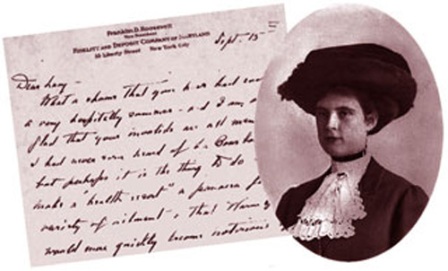 Franklin D. Roosevelt
Vice President
Fidelity and Deposit Company of Maryland
55 Liberty Street New York City
Sept 13
Dear
What a shame that your had
a very hospitally summer - and I am
glad that your invalids are all
I had never even heard of La Bourboule
but perhaps it is the thing to do
make a "health resort" a
variety of ailments, that Warm
would more quickly become notorious